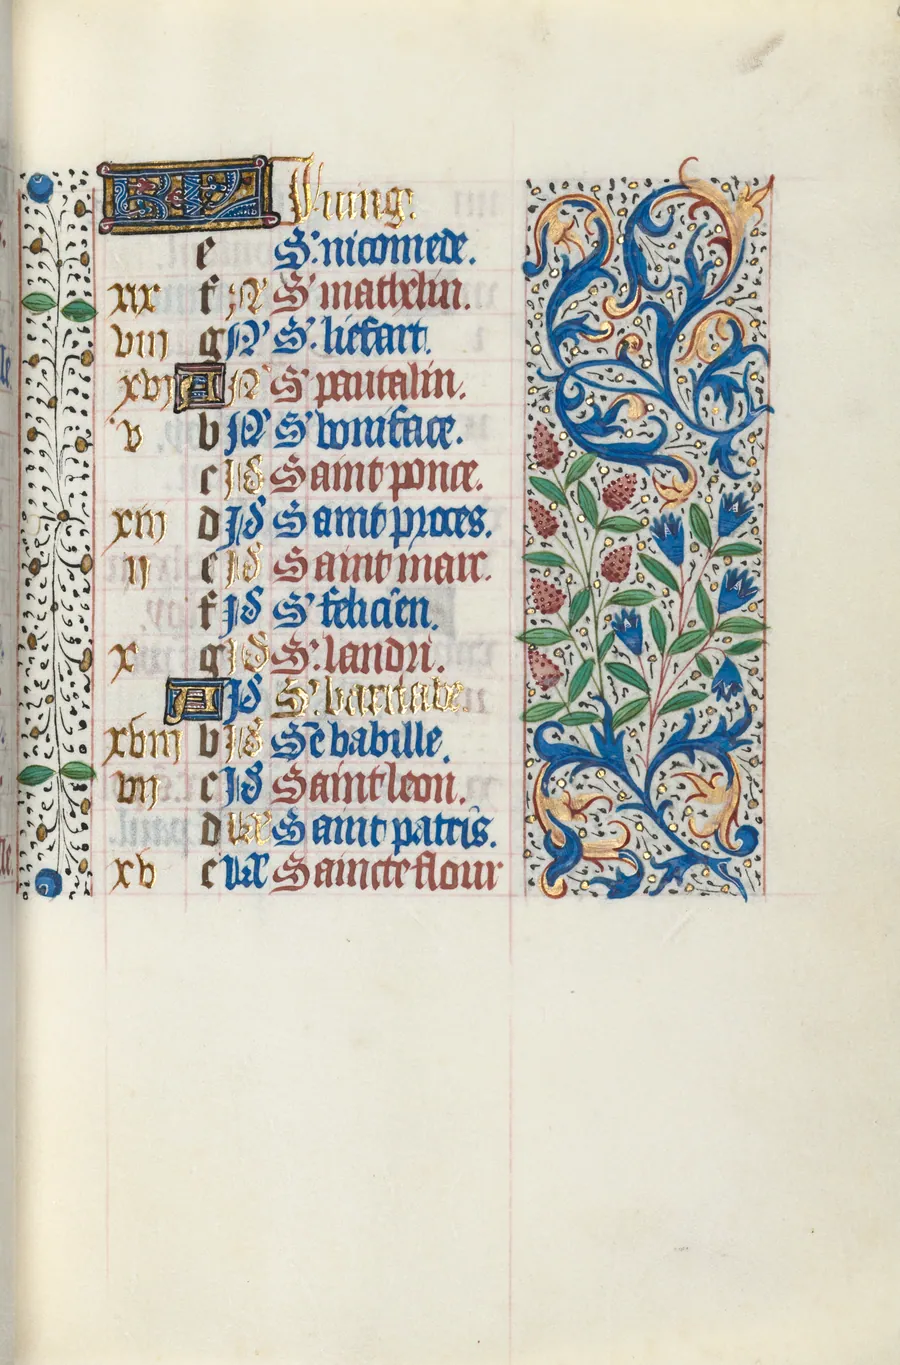 KL Juing.
e S. nicomede.
xix f N S. mathelin.
viii g N S. liefart.
xvj A N S. pantalin.
v b N S. boniface.
c id Saint ponce.
xiij d id Saint proces.
ij e id Saint marc.
f id S. felicien.
x g id S. landri.
A id S. barnabe.
xviij b id Se babille.
vij c id Saint leon.
d kl Saint patris.
xv e kl Saincte flour